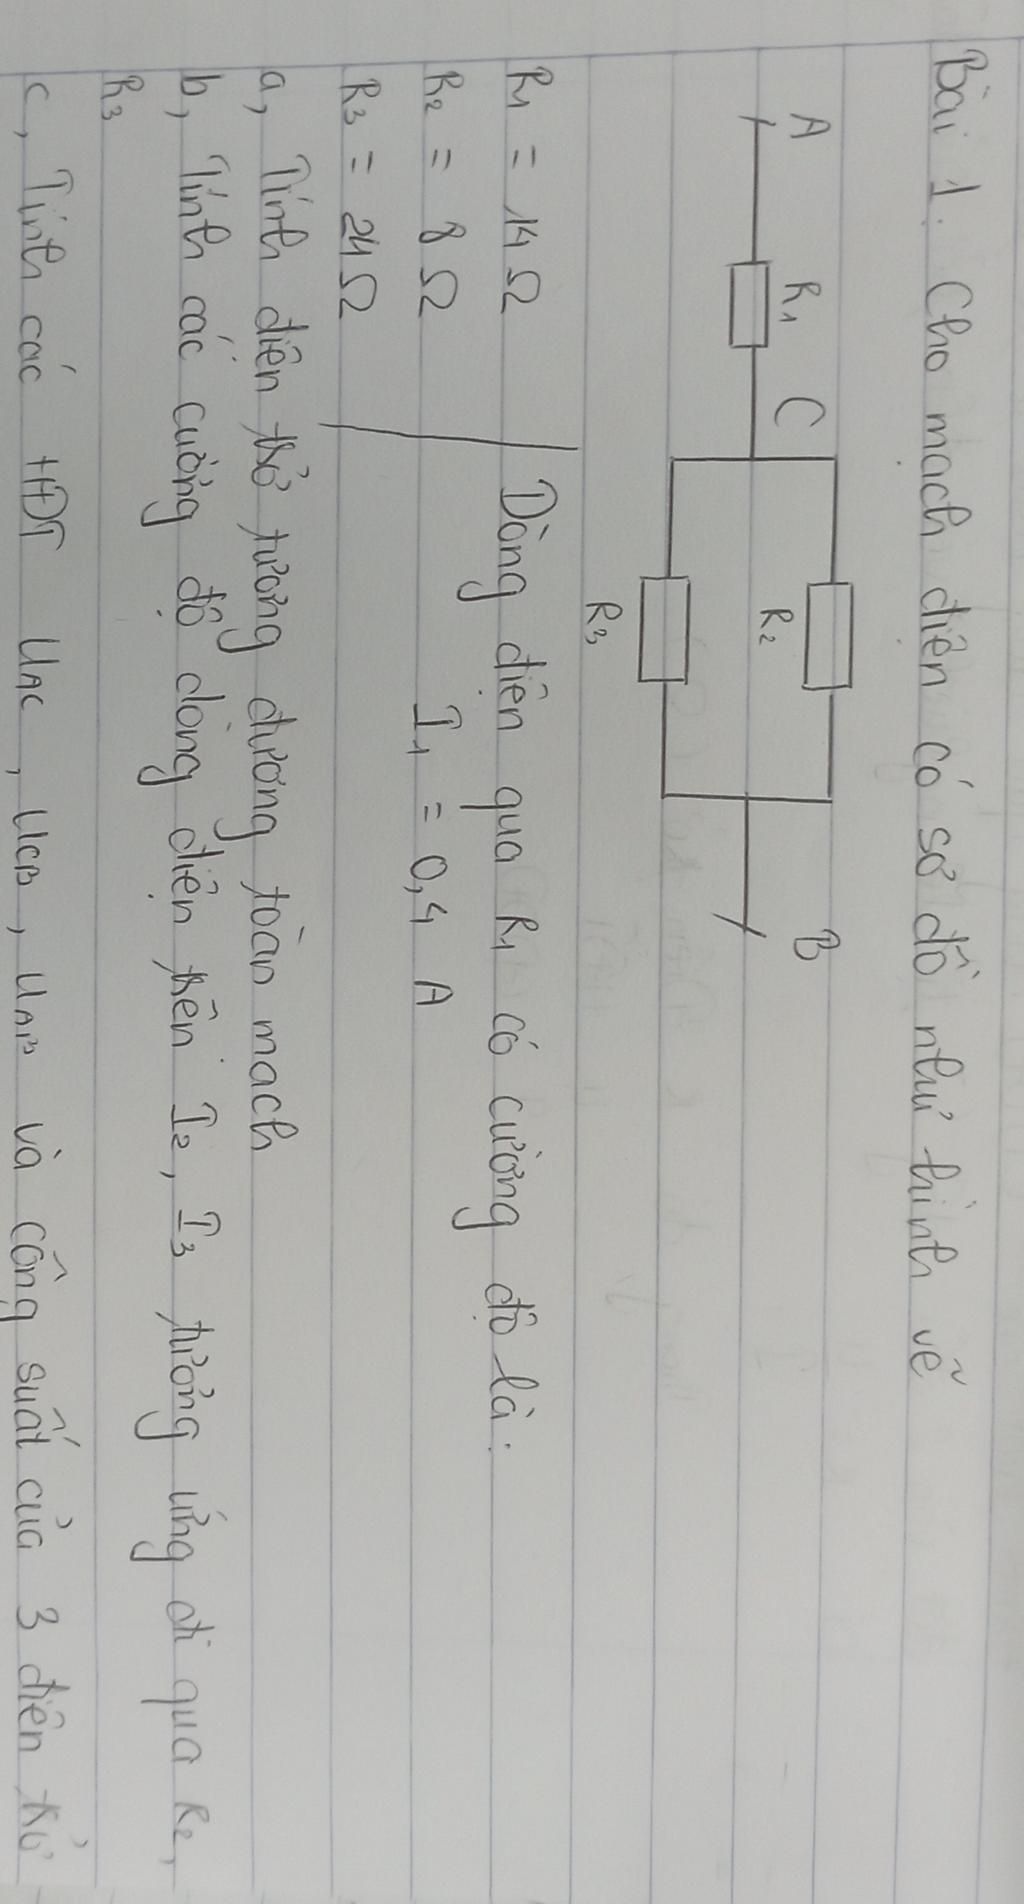 Bài 1. Cho mạch điện có sơ đồ như hình vẽ
A R1 C R2 B
R3
R1 = 14 Ω Dòng điện qua R1 có cường độ là:
R2 = 8 Ω I1 = 0,4 A
R3 = 24 Ω
a, Tính điện trở tương đương toàn mạch
b, Tính các cường độ dòng điện trên I2, I3 tương ứng đi qua R2,
R3
c, Tính các HĐT UAC, UCB, UAB và công suất của 3 điện trở